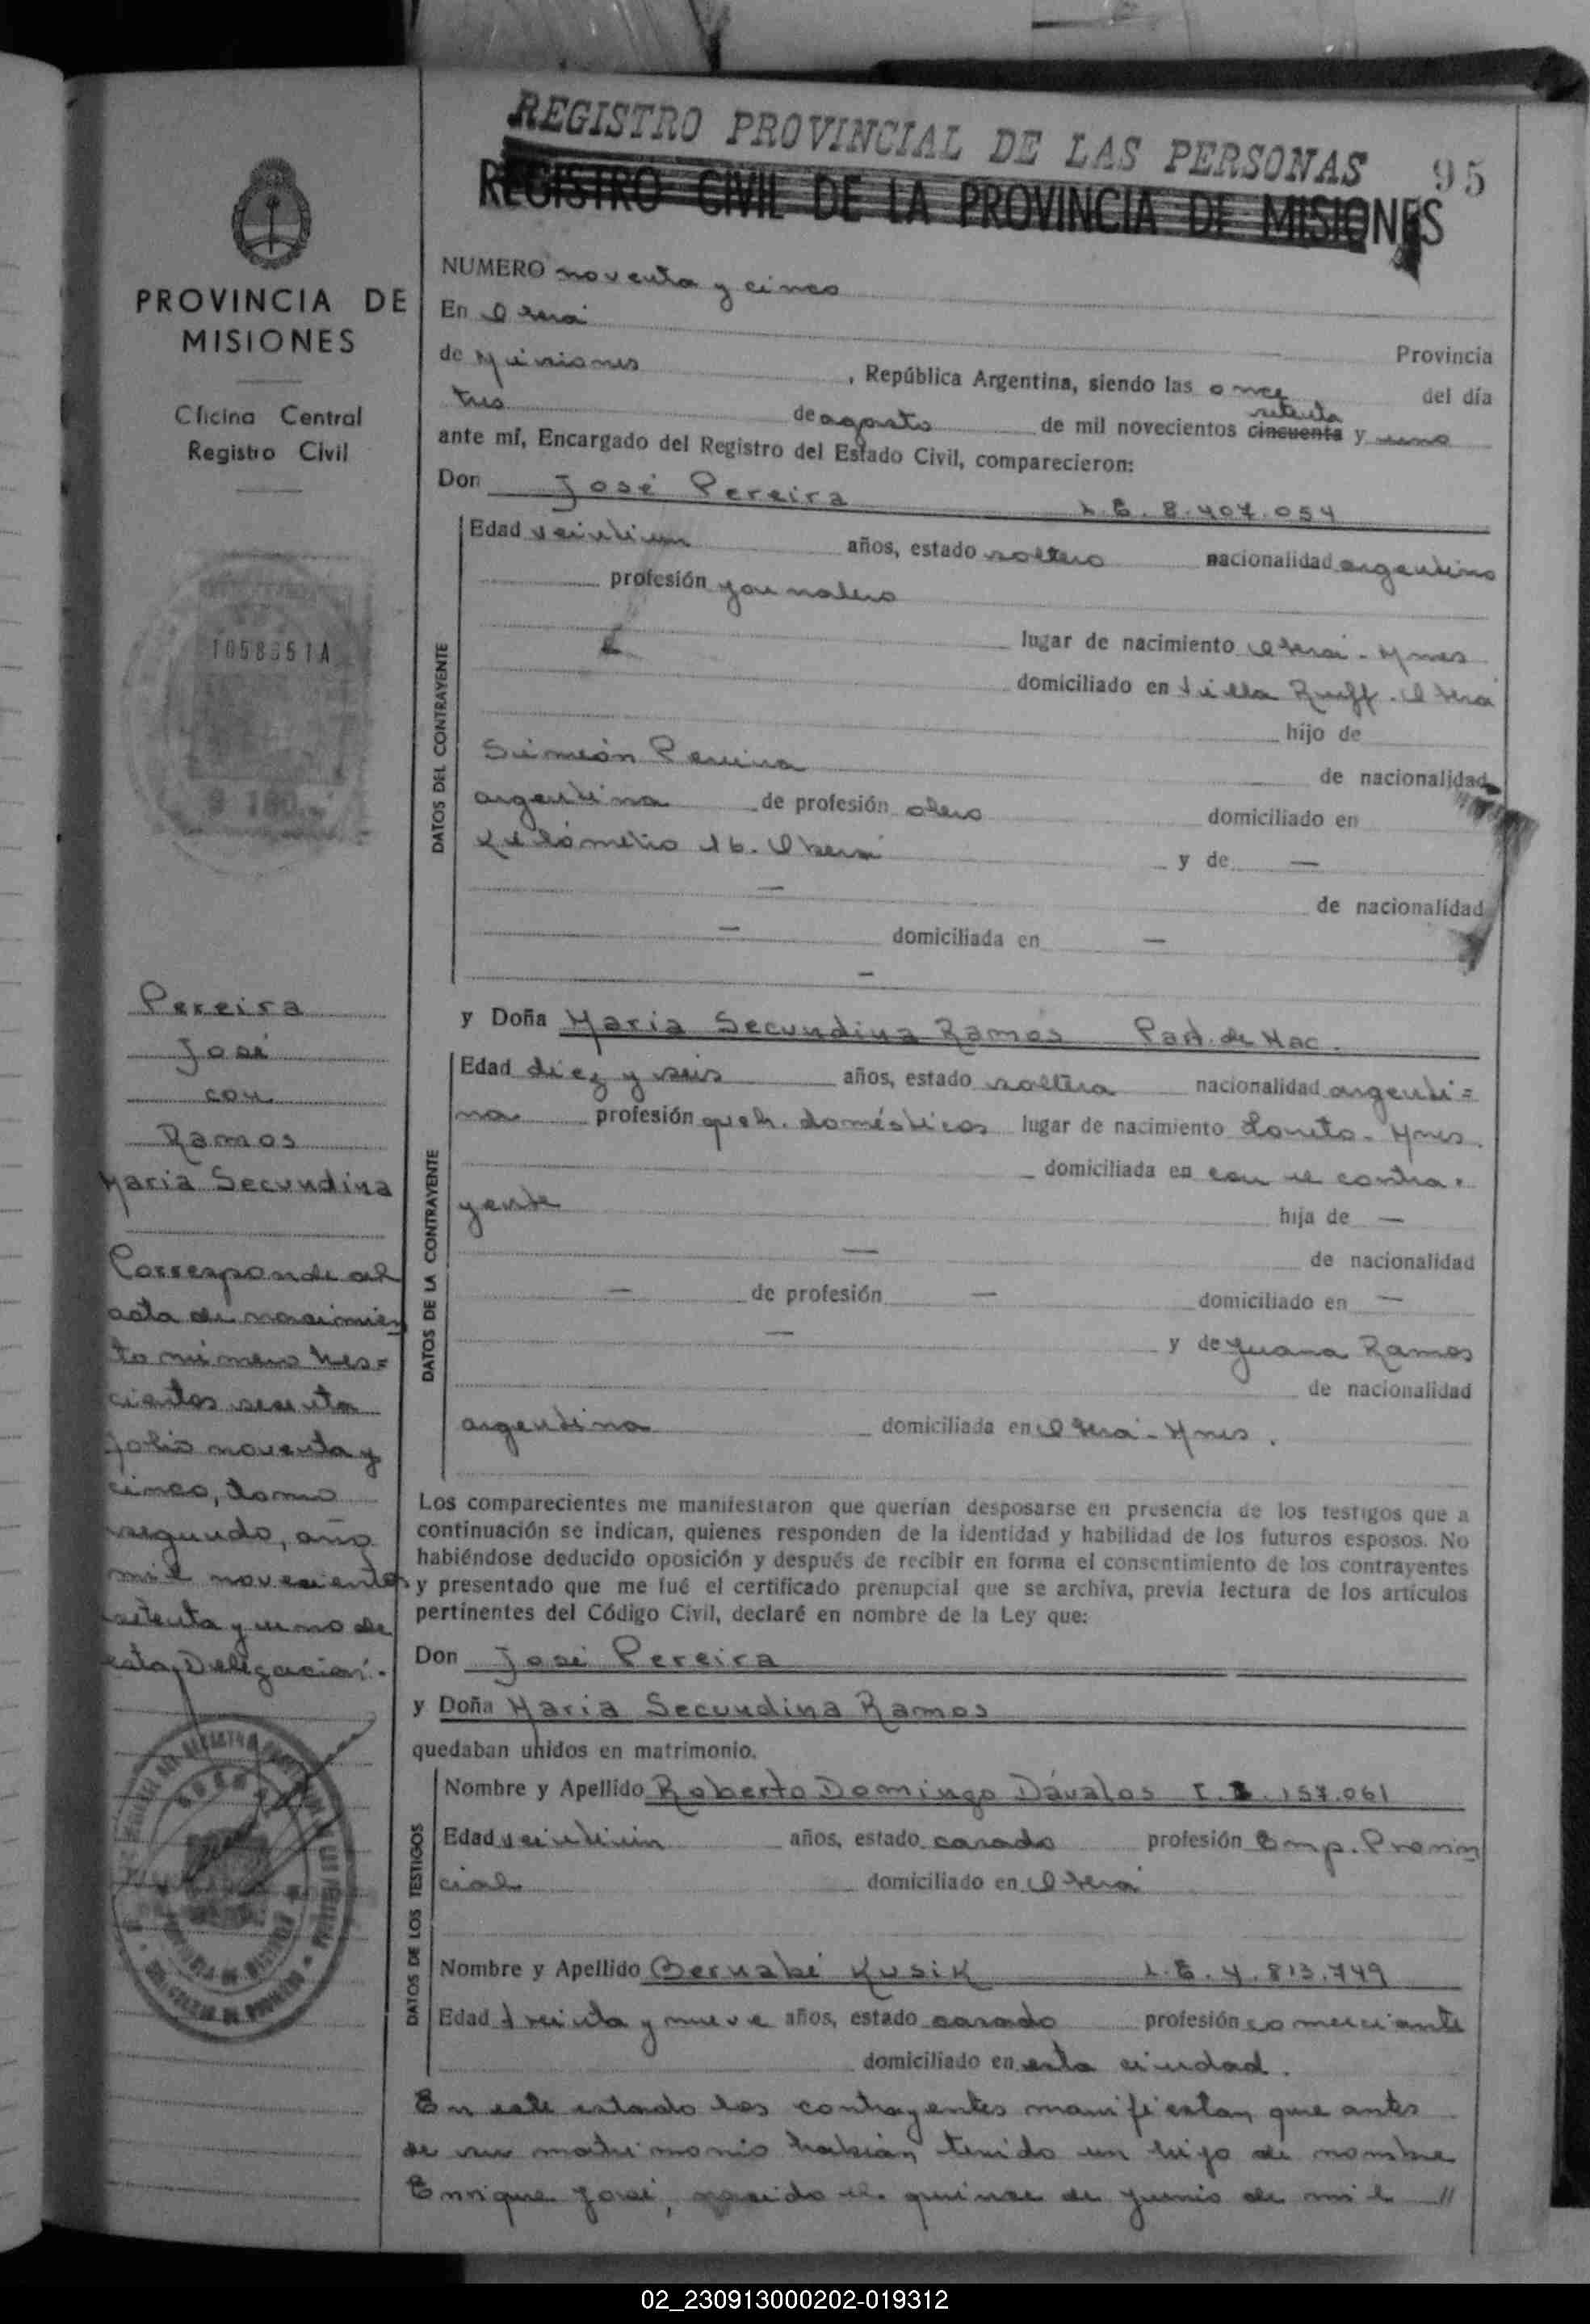 REGISTRO PROVINCIAL DE LAS PERSONAS
95
REGISTRO CIVIL DE LA PROVINCIA DE MISIONES
PROVINCIA DE
MISIONES
Oficina Central
Registro Civil
1058351A
Pereira
José
con
Ramos
Maria Secundina
Corresponde al
acta de nacimien
to número tres=
cientos sesenta
folio noventa y
cinco, tomo
segundo, año
mil novecientos
setenta y uno de
esta Delegación.
NUMERO noventa y cinco
En Oberá
Provincia
de Misiones , República Argentina, siendo las once del día
tres de agosto de mil novecientos cincuenta setenta y uno
ante mí, Encargado del Registro del Estado Civil, comparecieron:
Don José Pereira L.E. 8.407.054
DATOS DEL CONTRAYENTE
Edad veintiun años, estado soltero nacionalidad argentino
profesión jornalero
lugar de nacimiento Oberá - Mnes
domiciliado en Villa Ruff. Oberá
hijo de
Simeón Pereira
de nacionalidad
argentina de profesión olero domiciliado en
Kilómetro 16. Oberá y de —
— de nacionalidad
— domiciliada en —
—
y Doña Maria Secundina Ramos Part. de Nac.
DATOS DE LA CONTRAYENTE
Edad diez y seis años, estado soltera nacionalidad argenti=
na profesión queh. domésticos lugar de nacimiento Loreto - Mnes.
domiciliada en con el contra-
yente hija de —
— de nacionalidad
— de profesión — domiciliado en —
— y de Juana Ramos
de nacionalidad
argentina domiciliada en Oberá - Mnes.
Los comparecientes me manifestaron que querían desposarse en presencia de los testigos que a
continuación se indican, quienes responden de la identidad y habilidad de los futuros esposos. No
habiéndose deducido oposición y después de recibir en forma el consentimiento de los contrayentes
y presentado que me fué el certificado prenupcial que se archiva, previa lectura de los artículos
pertinentes del Código Civil, declaré en nombre de la Ley que:
Don José Pereira
y Doña Maria Secundina Ramos
quedaban unidos en matrimonio.
DATOS DE LOS TESTIGOS
Nombre y Apellido Roberto Domingo Dávalos 157.061
Edad veintiún años, estado casado profesión Emp. Provin
cial domiciliado en Oberá
Nombre y Apellido Bernabé Kusik L.E. 4.813.749
Edad treinta y nueve años, estado casado profesión comerciante
domiciliado en esta ciudad.
En este estado los contrayentes manifiestan que antes
de su matrimonio habían tenido un hijo de nombre
Enrique José, nacido el quince de junio de mil //
02_230913000202-019312